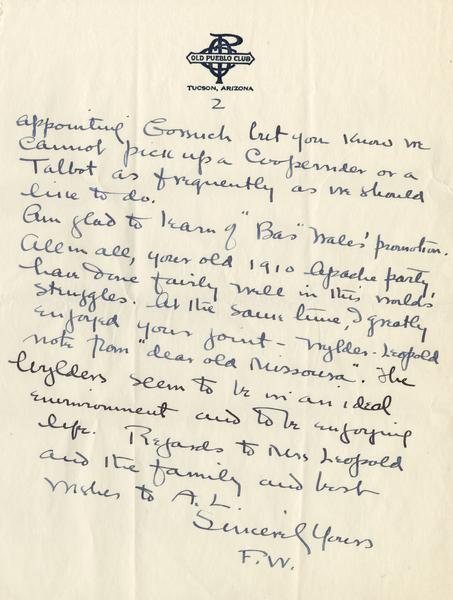 OLD PUEBLO CLUB
TUCSON, ARIZONA
2
appointing Gorsuch but you know we
cannot pick up a Cooperrider or a
Talbot as frequently as we should
like to do.
Am glad to learn of "Bas" Wales' promotion.
All in all, your old 1910 Apache party,
have done fairly well in this world's
struggles. At the same time, I greatly
enjoyed your joint - Wylder-Leopold
note from "dear old Missoura". The
Wylders seem to be in an ideal
environment and to be enjoying
life. Regards to Mrs Leopold
and the family and best
wishes to A. L.
Sincerely Yours
F.W.